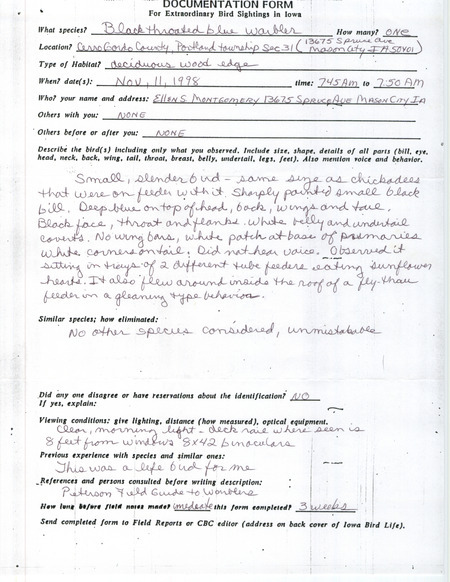 DOCUMENTATION FORM
For Extraordinary Bird Sightings in Iowa
What species? Black throated blue warbler How many? ONE
13675 Spruce Ave
Location? Cerro Gordo County, Portland township Sec 31 ( Mason City IA 50401
Type of Habitat? deciduous wood edge
When? date(s): Nov, 11, 1998 time: 745 AM to 7:50 AM
Who? your name and address: Ellen S Montgomery 13675 Spruce Ave Mason City IA
Others with you: NONE
Others before or after you: NONE
Describe the bird(s) including only what you observed. Include size, shape, details of all parts (bill, eye,
head, neck, back, wing, tail, throat, breast, belly, undertail, legs, feet). Also mention voice and behavior.
Small, slender bird - same size as chickadees
that were on feeder with it. Sharply pointed small black
bill. Deep blue on top of head, back, wings and tail.
Black face, throat and flanks. White belly and undertail
coverts. No wing bars, white patch at base of primaries
white corners on tail. Did not hear voice. Observed it
sitting in trays of 2 different tube feeders eating sunflower
hearts. It also flew around inside the roof of a fly-thru
feeder in a gleaning type behavior.
Similar species; how eliminated:
No other species considered, unmistakable
Did any one disagree or have reservations about the identification? NO
If yes, explain:
Viewing conditions: give lighting, distance (how measured), optical equipment.
Clear, morning light - deck rail where seen is
8 feet from windows 8x42 binoculars
Previous experience with species and similar ones:
This was a life bird for me
References and persons consulted before writing description:
Peterson Field Guide to Warblers
How long before field notes made? imediate this form completed? 3 weeks
Send completed form to Field Reports or CBC editor (address on back cover of Iowa Bird Life).